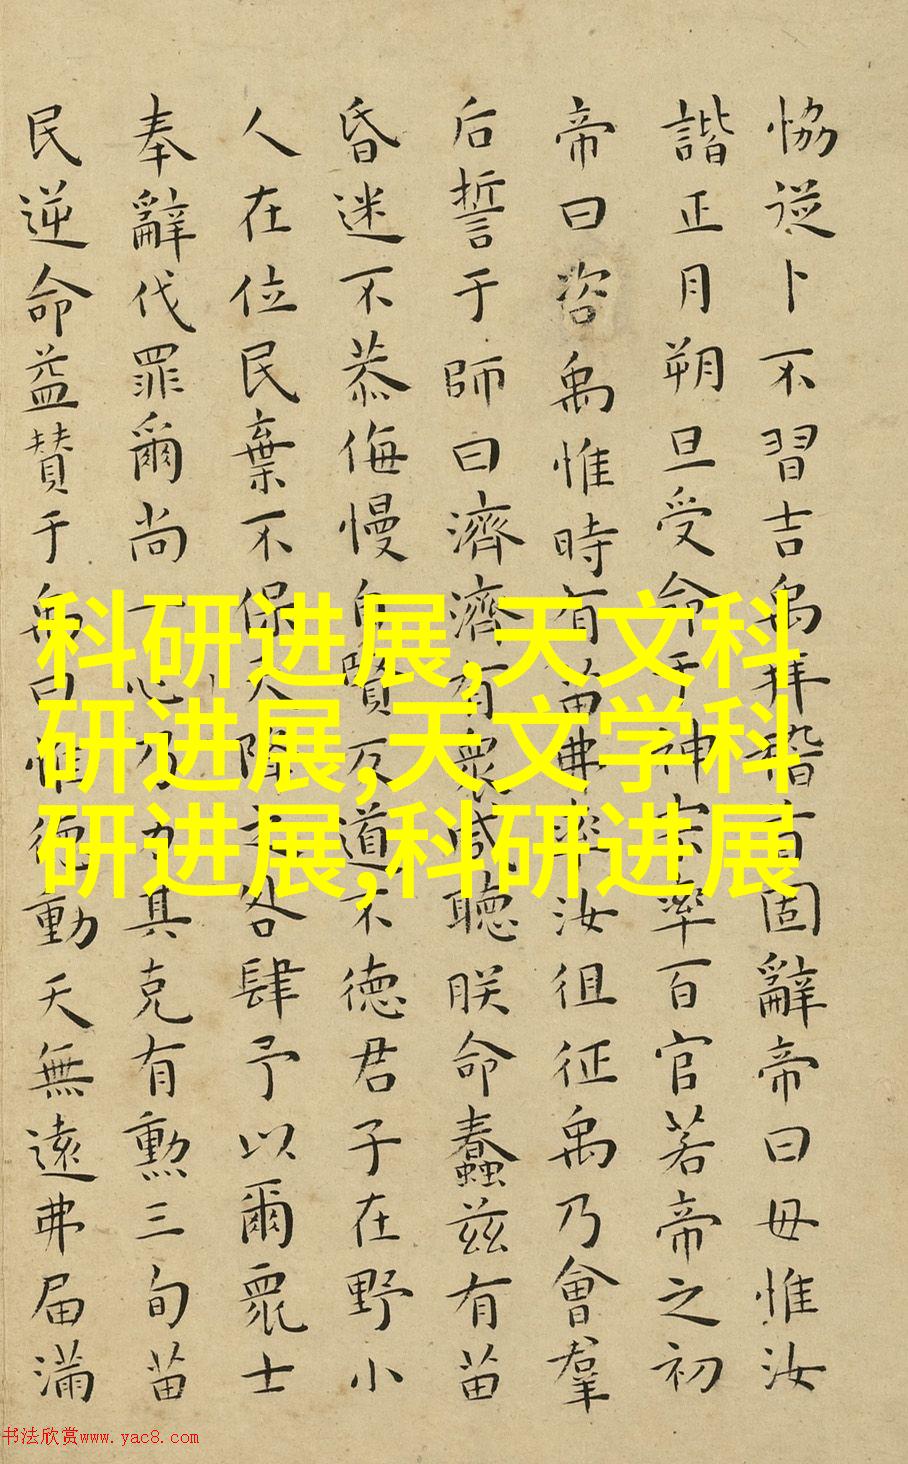 恊從卜不習吉禹拜稽首固辭帝曰毋惟汝
諧正月朔旦受命于神宗率百官若帝之初
帝曰咨禹惟時有苗弗率汝徂征禹乃會羣
后誓于師曰濟濟有衆咸聽朕命蠢茲有苗
昏迷不恭侮慢自賢反道不德君子在野小
人在位民棄不保天降之咎肆予以爾眾士
奉辭伐罪爾尚一心乃力其克有勲三旬苗
民逆命益贊于禹曰惟德動天無遠弗届滿
科研进展,天文科
研进展,天文学科
研进展,科研进展
书法欣赏www.yac8.com